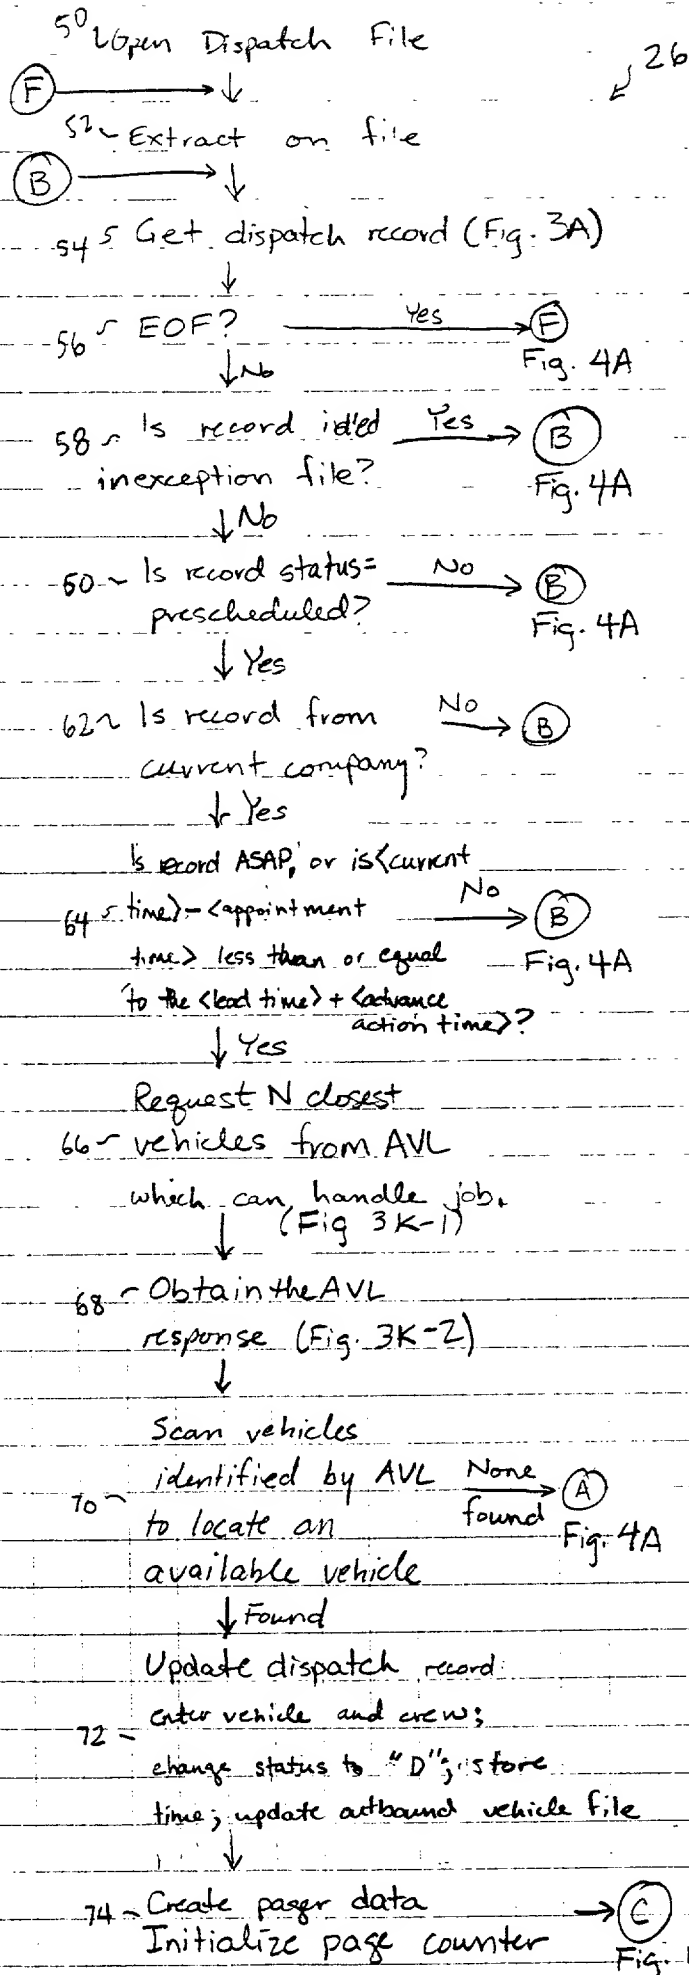 50 Open Dispatch File
26
F
52 Extract on file
B
54 Get dispatch record (Fig. 3A)
56 EOF? Yes F
Fig. 4A
No
58 Is record id'ed Yes B
in exception file? Fig. 4A
No
60 Is record status= No B
prescheduled? Fig. 4A
Yes
62 Is record from No B
current company?
Yes
Is record ASAP, or is <current
64 time> - <appointment No B
time> less than or equal Fig. 4A
to the <lead time> + <advance
action time>?
Yes
Request N closest
66 vehicles from AVL
which can handle job.
(Fig 3K-1)
68 Obtain the AVL
response (Fig. 3K-2)
Scan vehicles
identified by AVL None A
70 to locate an found Fig. 4A
available vehicle
Found
Update dispatch record:
72 enter vehicle and crew;
change status to "D"; store
time; update actbound vehicle file
74 Create pager data C
Initialize page counter Fig.